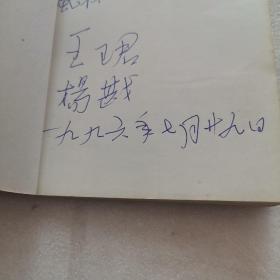 王珺
楊戡
一九九六年七月廿九日